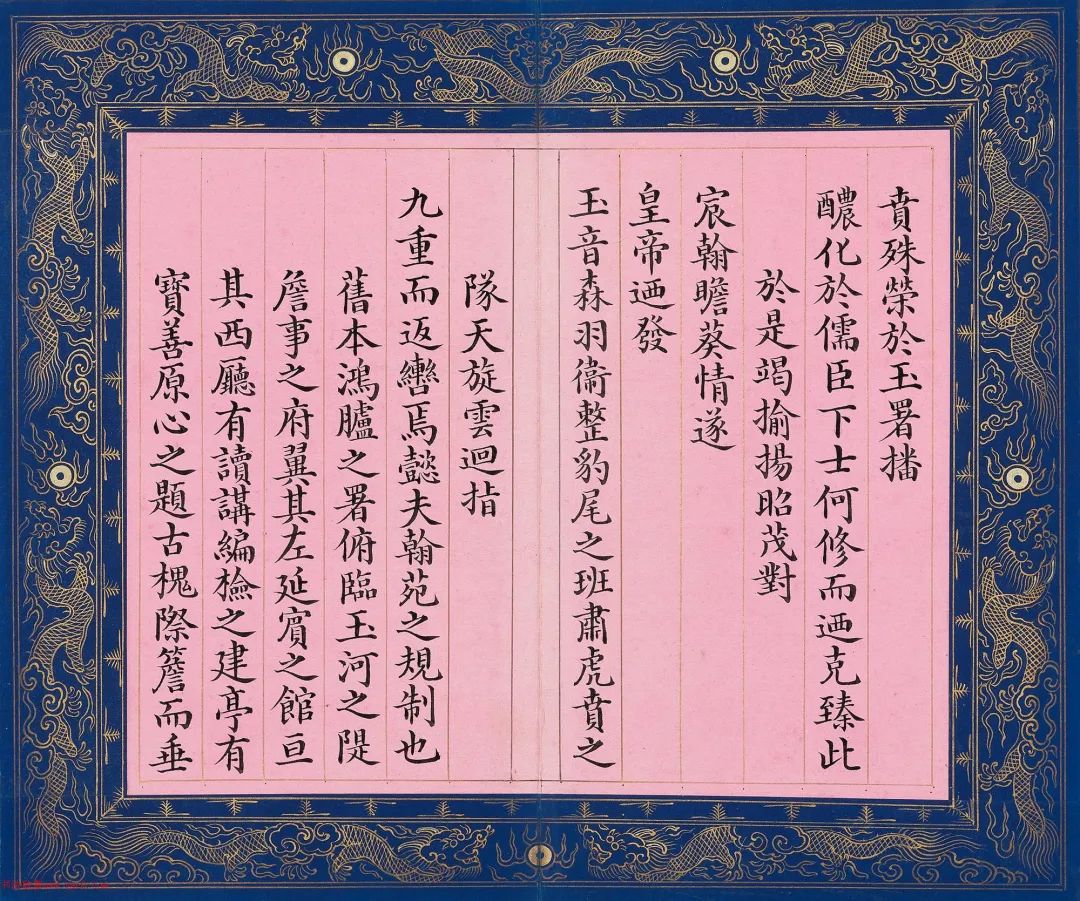 賁殊榮於玉署播
醲化於儒臣下士何修而迺克臻此
於是竭揄揚昭茂對
宸翰瞻葵情遂
皇帝迺發
玉音森羽衞整豹尾之班肅虎賁之
隊天旋雲迴指
九重而返轡焉懿夫翰苑之規制也
舊本鴻臚之署俯臨玉河之隄
詹事之府翼其左延賓之館亘
其西廳有讀講編檢之建亭有
寶善原心之題古槐際簷而垂